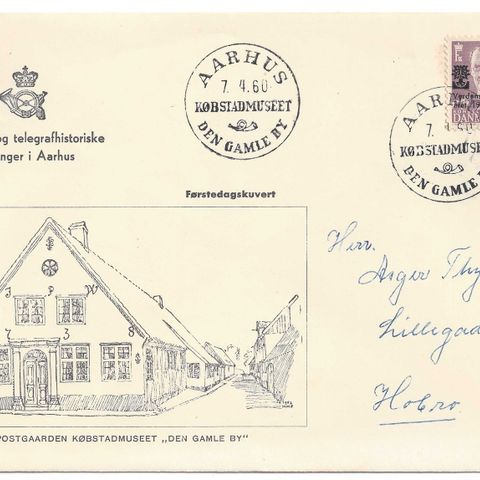 og telegrafhistoriske
nger i Aarhus
AARHUS
7. 4. 60
KØBSTADMUSEET
DEN GAMLE BY
Verdens
DANM
AAR
7.
KØBSTADMUSE
DEN GAMLE BY
Førstedagskuvert
J P W
7 3 8
POSTGAARDEN KØBSTADMUSEET „DEN GAMLE BY"
Herr.
Asger Thy
Lillegad
Hobro